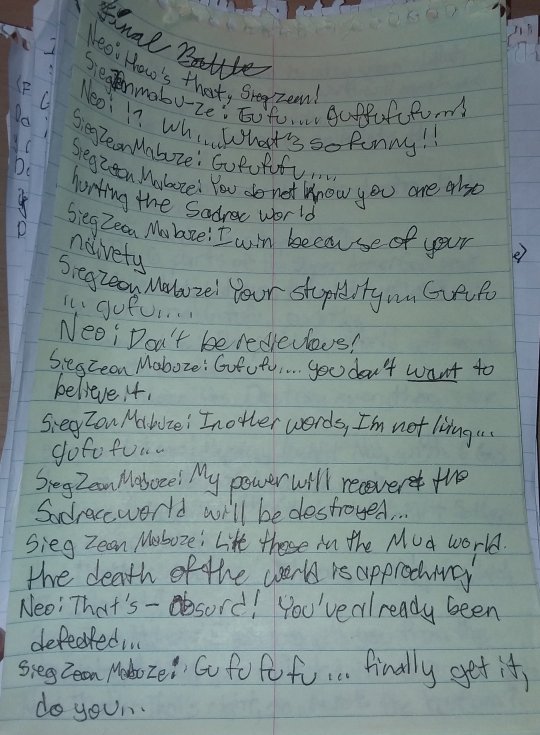 Final Battle
Neo: How's that, SiegZeon!
SiegZeonmabu-ze: Gufu.... guffufufu...!
Neo: !? Wh....What's so funny!!
SiegZeonMabuze: Gufufufu....
SiegZeonMabuze: You do not know you are also
hurting the Sadrac world
SiegZeon Mabuze: I win because of your
naivety
SiegZeonMabuze: Your stupidity.... Gufufu
... gufu....
Neo: Don't be rediculous!
SiegZeon Mabuze: Gufufu.... you don't want to
believe it.
SiegZon Mabuze: In other words, I'm not lying...
gufufu....
SiegZeonMabuze: My power will recover & the
Sadracc world will be destroyed...
Sieg Zeon Mabuze: Like those in the Mud world.
the death of the world is approching!
Neo: That's - absurd! You've already been
defeated...
SiegZeon Mabuze: Gufufufu... finally get it,
do you...